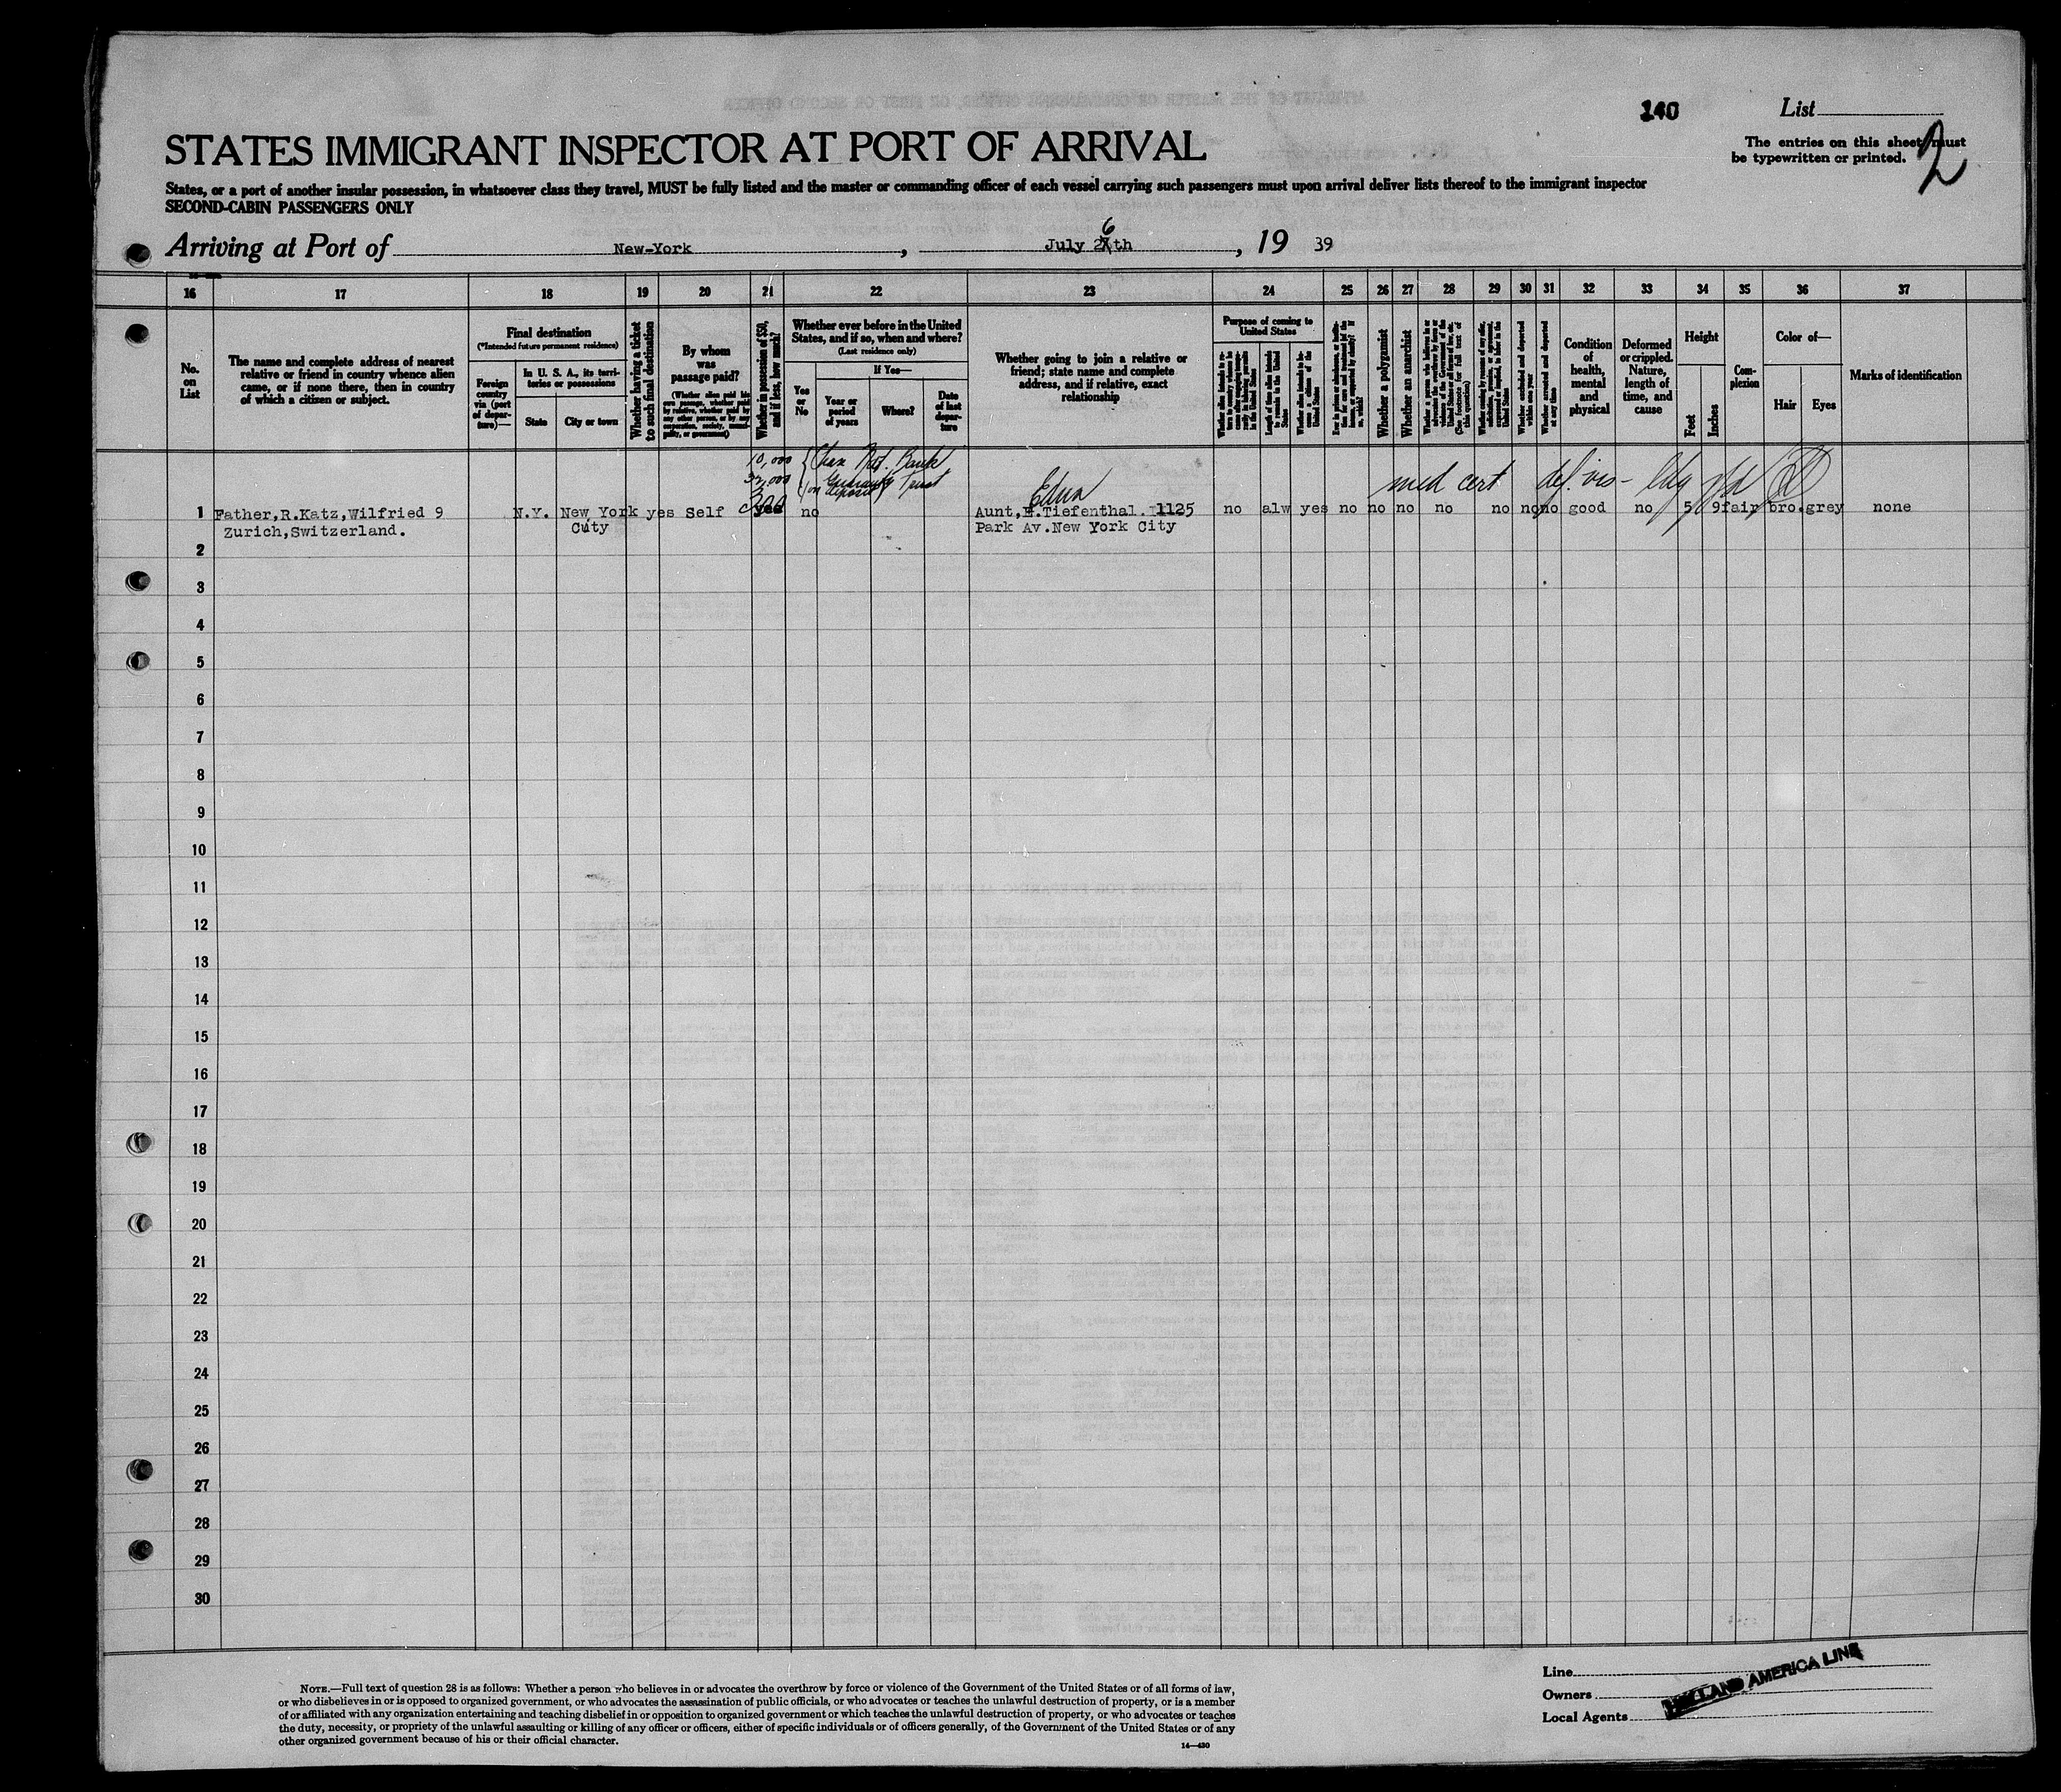 140
List
STATES IMMIGRANT INSPECTOR AT PORT OF ARRIVAL
The entries on this sheet must
be typewritten or printed.
2
States, or a port of another insular possession, in whatsoever class they travel, MUST be fully listed and the master or commanding officer of each vessel carrying such passengers must upon arrival deliver lists thereof to the immigrant inspector
SECOND-CABIN PASSENGERS ONLY
Arriving at Port of New-York, July 26th, 19 39
16 17 18 19 20 21 22 23 24 25 26 27 28 29 30 31 32 33 34 35 36 37
No.
on
List
The name and complete address of nearest
relative or friend in country whence alien
came, or if none there, then in country
of which a citizen or subject.
Final destination
(*Intended future permanent residence)
Foreign
country
via (port
of depar-
ture)—
In U. S. A., its terri-
tories or possessions
State
City or town
Whether having a ticket
to such final destination
By whom
was
passage paid?
(Whether alien paid his
own passage, whether paid
by relative, whether paid by
any other person, or by any
corporation, society, munici-
pality, or government)
Whether in possession of $50,
and if less, how much?
Whether ever before in the United
States, and if so, when and where?
(Last residence only)
Yes
or
No
If Yes—
Year or
period
of years
Where?
Date
of last
depar-
ture
Whether going to join a relative or
friend; state name and complete
address, and if relative, exact
relationship
Purpose of coming to
United States
Length of time alien intends
to remain in the United
States
Whether alien intends to be-
come a citizen of the
United States
Whether a polygamist
Whether an anarchist
Whether excluded and deported
within one year
Whether arrested and deported
at any time
Condition
of
health,
mental
and
physical
Deformed
or crippled.
Nature,
length of
time, and
cause
Height
Feet
Inches
Com-
plexion
Color of—
Hair
Eyes
Marks of identification
10,000 Chase Nat. Bank
on deposit Guaranty Trust
300
Edna
med cert def. vis-
1 Father,R.Katz,Wilfried 9 N.Y. New York yes Self yes no Aunt, .Tiefenthal. 1125 no alw yes no no no no no no no good no 5 9 fair bro. grey none
Zurich,Switzerland. City Park Av.New York City
2
3
4
5
6
7
8
9
10
11
12
13
14
15
16
17
18
19
20
21
22
23
24
25
26
27
28
29
30
NOTE.—Full text of question 28 is as follows: Whether a person who believes in or advocates the overthrow by force or violence of the Government of the United States or of all forms of law,
or who disbelieves in or is opposed to organized government, or who advocates the assassination of public officials, or who advocates or teaches the unlawful destruction of property, or is a member
of or affiliated with any organization entertaining and teaching disbelief in or opposition to organized government or which teaches the unlawful destruction of property, or who advocates or teaches
the duty, necessity, or propriety of the unlawful assaulting or killing of any officer or officers, either of specific individuals or of officers generally, of the Government of the United States or of any
other organized government because of his or their official character.
14—430
Line
Owners
Local Agents
HOLLAND AMERICA LINE